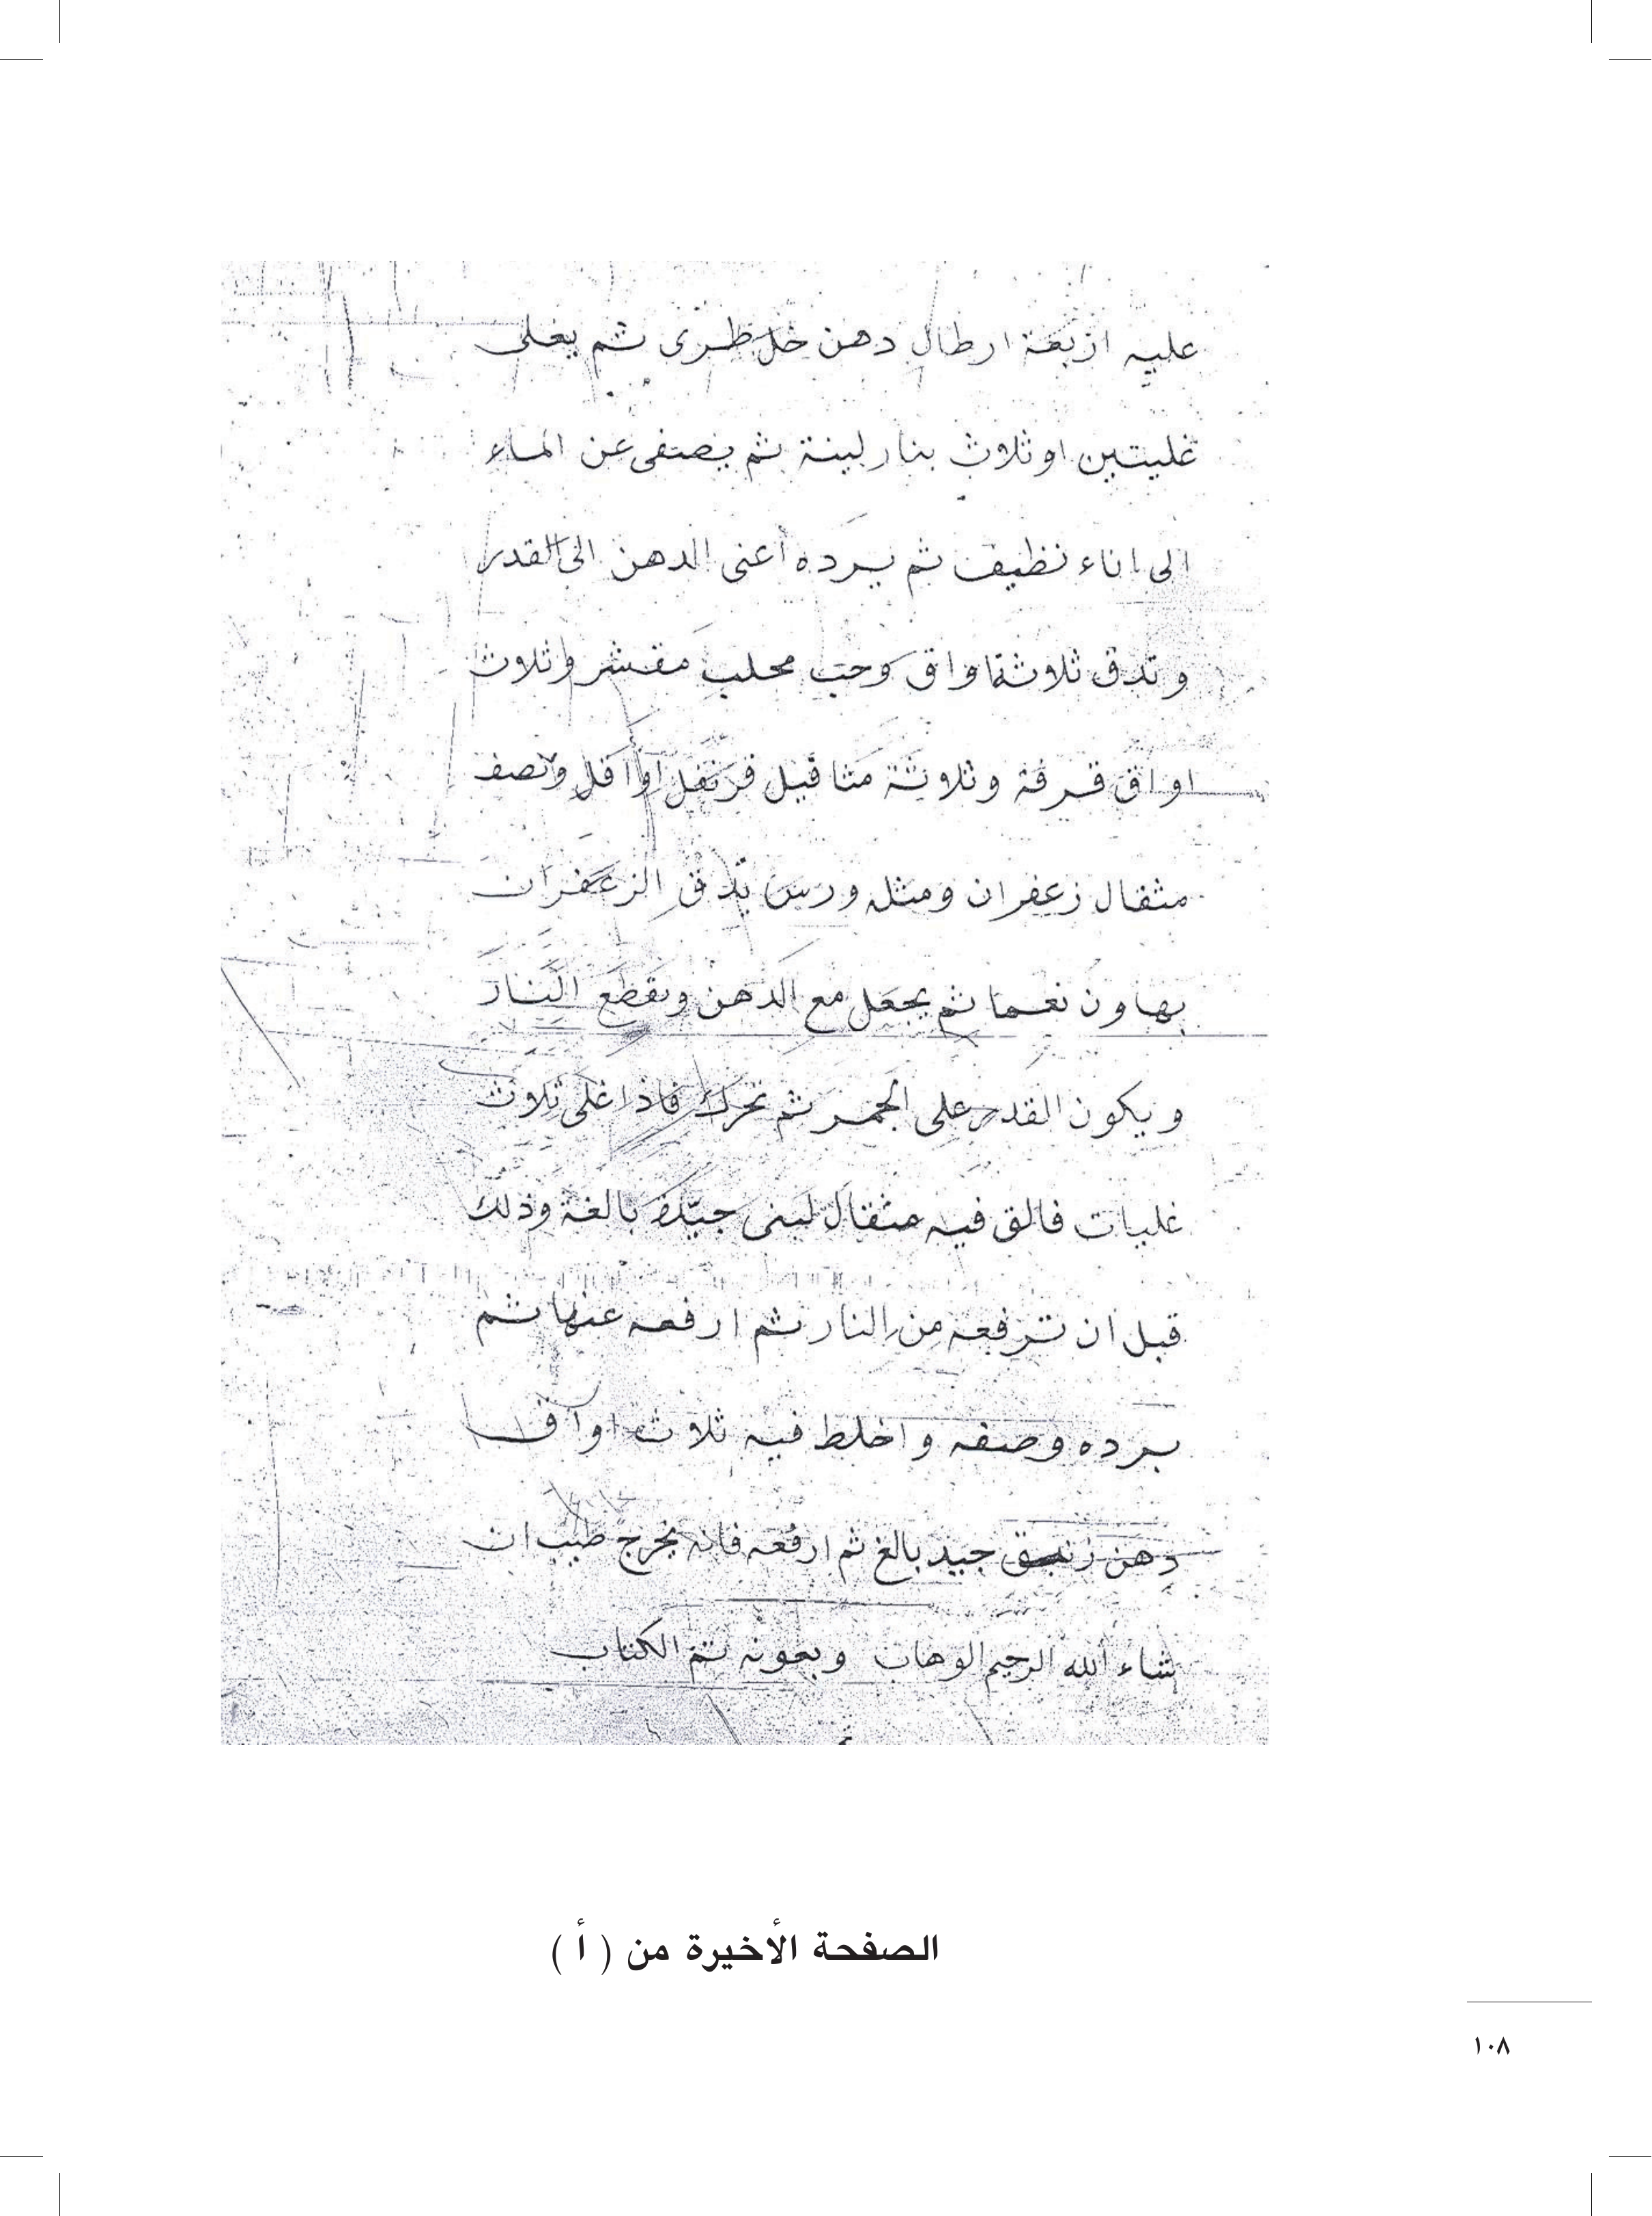 عليه اربعة ارطال دهن خل طرى ثم يغلى
غليتين او ثلاث بنار لينة ثم يصفى عن الماء
الى اناء نظيف ثم يرده أعنى الدهن الى القدر
و تدق ثلاثة اواق وحب محلب مقشر وثلاث
اواق قرفة وثلاثة مثاقيل قرنفل او اقل ونصف
مثقال زعفران ومثله ورس يدق الزعفران
بهاون نعما ثم يجعل مع الدهن وتقطع النار
ويكون القدر على الجمر ثم تحرك فاذا غلى ثلاث
غليات فالق فيه مثقال لبنى جيدة بالغة وذلك
قبل ان ترفعه من النار ثم ارفعه عنها ثم
برده وصفه واخلط فيه ثلاث اواق
دهن زنبق جيد بالغ ثم ارفعه فانه يخرج طيب ان
شاء الله الرحيم الوهاب وبعونه تم الكتاب
الصفحة الأخيرة من ( أ )
١٠٨